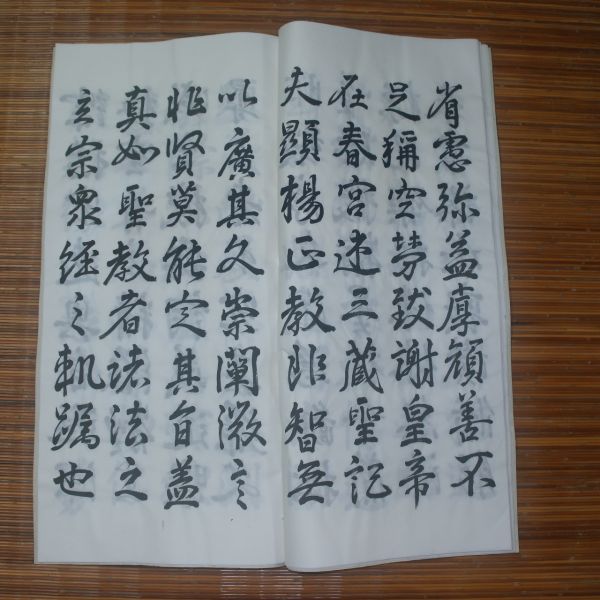 省慮弥益厚顏善不
足稱空勞致謝皇帝
在春宮述三藏聖記
夫顯揚正教非智無
以廣其文崇闡微言
非賢莫能定其旨蓋
真如聖教者諸法之
玄宗眾經之軌躅也